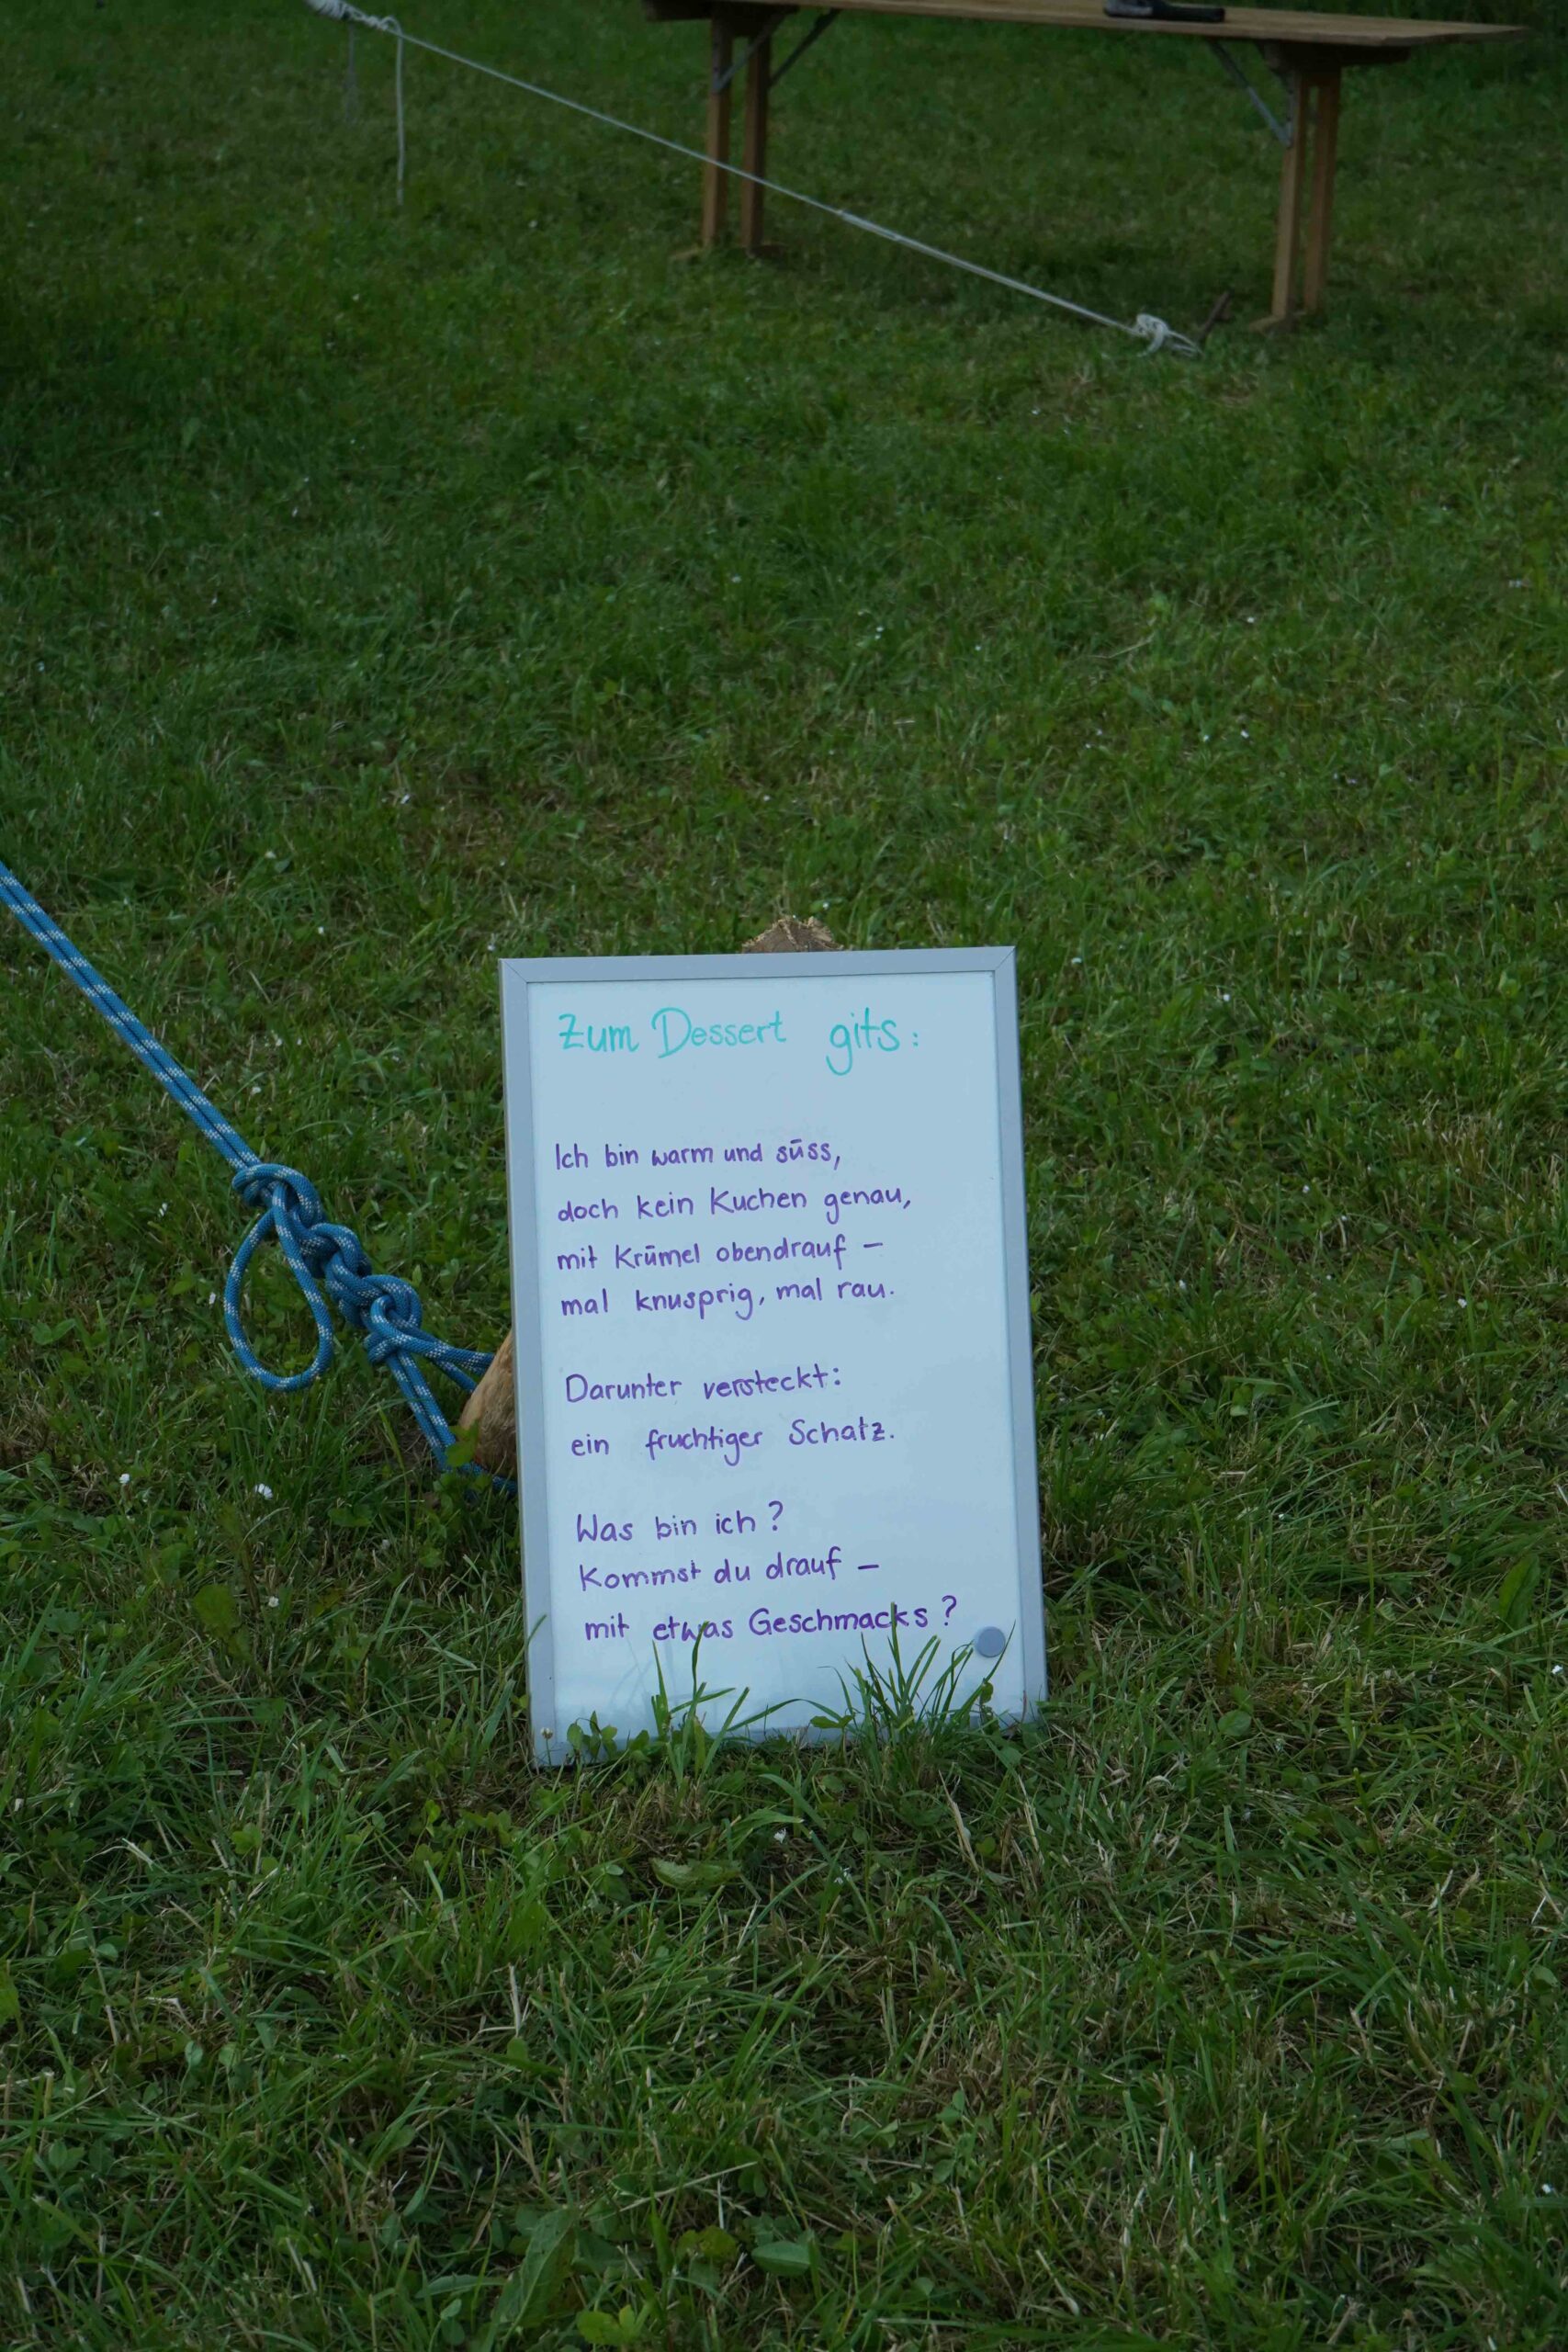 Zum Dessert gits:
Ich bin warm und süss,
doch kein Kuchen genau,
mit Krümel obendrauf –
mal knusprig, mal rau.
Darunter versteckt:
ein fruchtiger Schatz.
Was bin ich?
Kommst du drauf –
mit etwas Geschmacks?